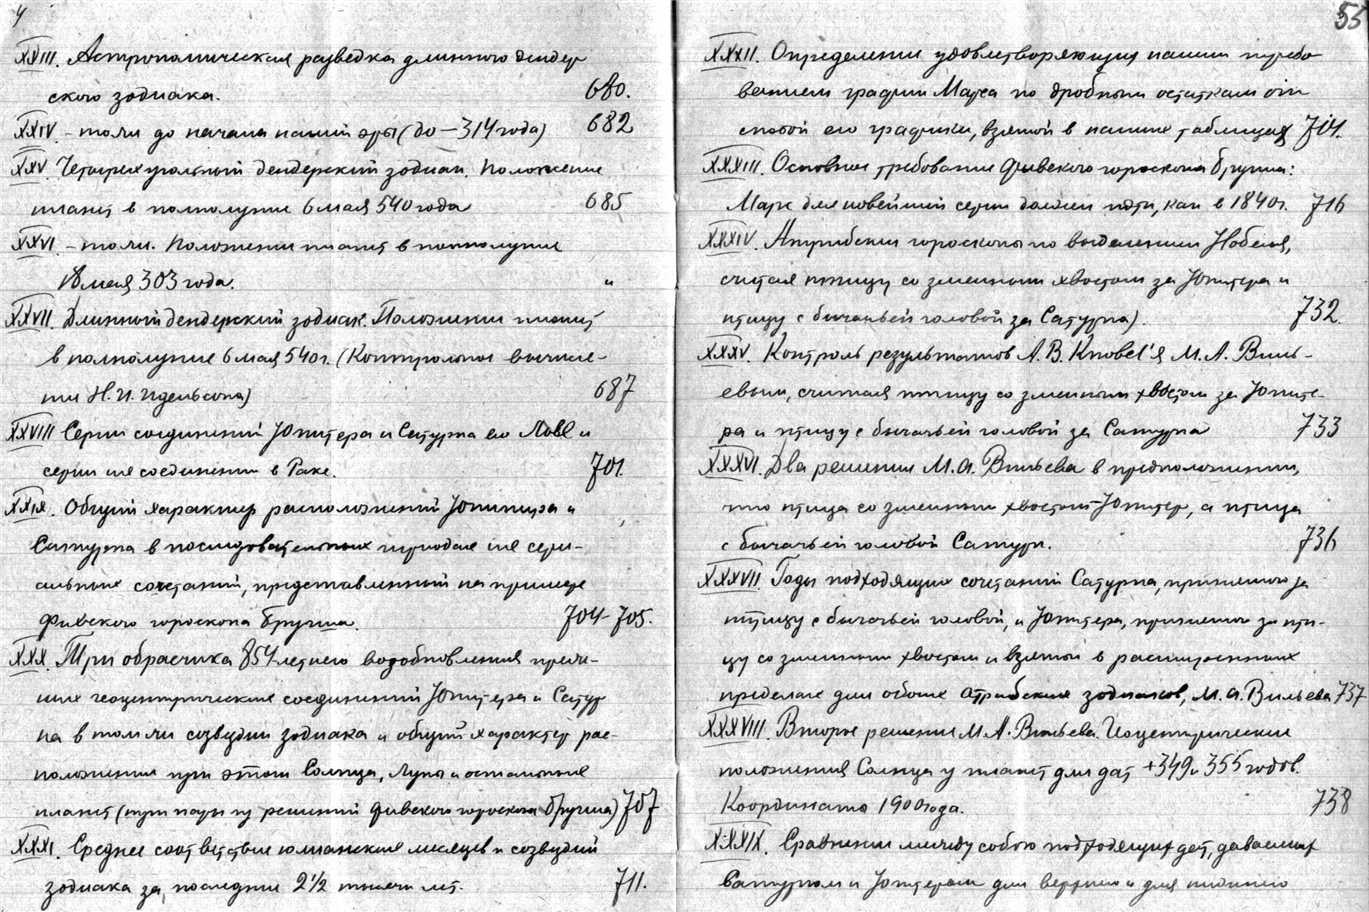 4
XXIII. Астрономическая разведка длинного дендер
ского зодиака. 680.
XXIV. – то ли до начала нашей эры (до – 314 года) 682
XXV. Четырехугольный дендерский зодиак. Положение
планет в полнолуние 6 мая 540 года 685
XXVI. – то ли. Положения планет в полнолуние
18 мая 303 года. "
XXVII. Длинный дендерский зодиак. Положения планет
в полнолуние 6 мая 540 г. (Контрольное вычисле-
ние Н. И. Идельсона) 687
XXVIII Серии соединений Юпитера и Сатурна во Льве и
серии их соединений в Раке. 701.
XXIX. Общий характер расположений Юпитера и
Сатурна в последовательных периодах их сери-
альных сочетаний, представленный на примере
Фивского гороскопа Бругша. 704-705.
XXX. Три образчика 854-летнего возобновления преж-
них геоцентрических соединений Юпитера и Сатур
на в том же созвездии зодиака и общий характер рас-
положения при этом Солнца, Луны и остальных
планет (три пары из решений фивского гороскопа Бругша) 707
XXXI. Среднее соответствие юлианских месяцев и созвездий
зодиака за последние 2½ тысячи лет. 711.
55
XXXII. Определения удовлетворяющих нашим требо
ваниям градии Марса по дробным остаткам от
его графики, взятой в наших таблицах 704.
XXXIII. Основное требование Фивского гороскопа Бругша:
Марс для новейших серии должен идти, как в 1840 г. 716
XXXIV. Атрибские гороскопы по вычислению Нобеля,
считая птицу со змеиным хвостом за Юпитера и
птицу с бычачьей головой за Сатурна). 732.
XXXV. Контроль результатов А. В. Knobel'я М. А. Виль-
евым, считая птицу со змеиным хвостом за Юпите-
ра и птицу с бычачьей головой за Сатурна 733
XXXVI. Два решения М. А. Вильева в предположении,
что птица со змеиным хвостом Юпитер, а птица
с бычачьей головой Сатурн. 736
XXXVII. Годы подходящих сочетаний Сатурна, принятого за
птицу с бычачьей головой, и Юпитера, принятого за пти-
цу со змеиным хвостом и взятые в расширенных
пределах для обоих атрибских зодиаков, М. А. Вильева 737
XXXVIII. Второе решение М. А. Вильева. Геоцентрические
положения Солнца и планет для дат +349 и 355 годов.
Координаты 1900 года. 738
XXXIX. Сравнения между собою подходящих дат, даваемых
Сатурном и Юпитером для верхнего и для нижнего